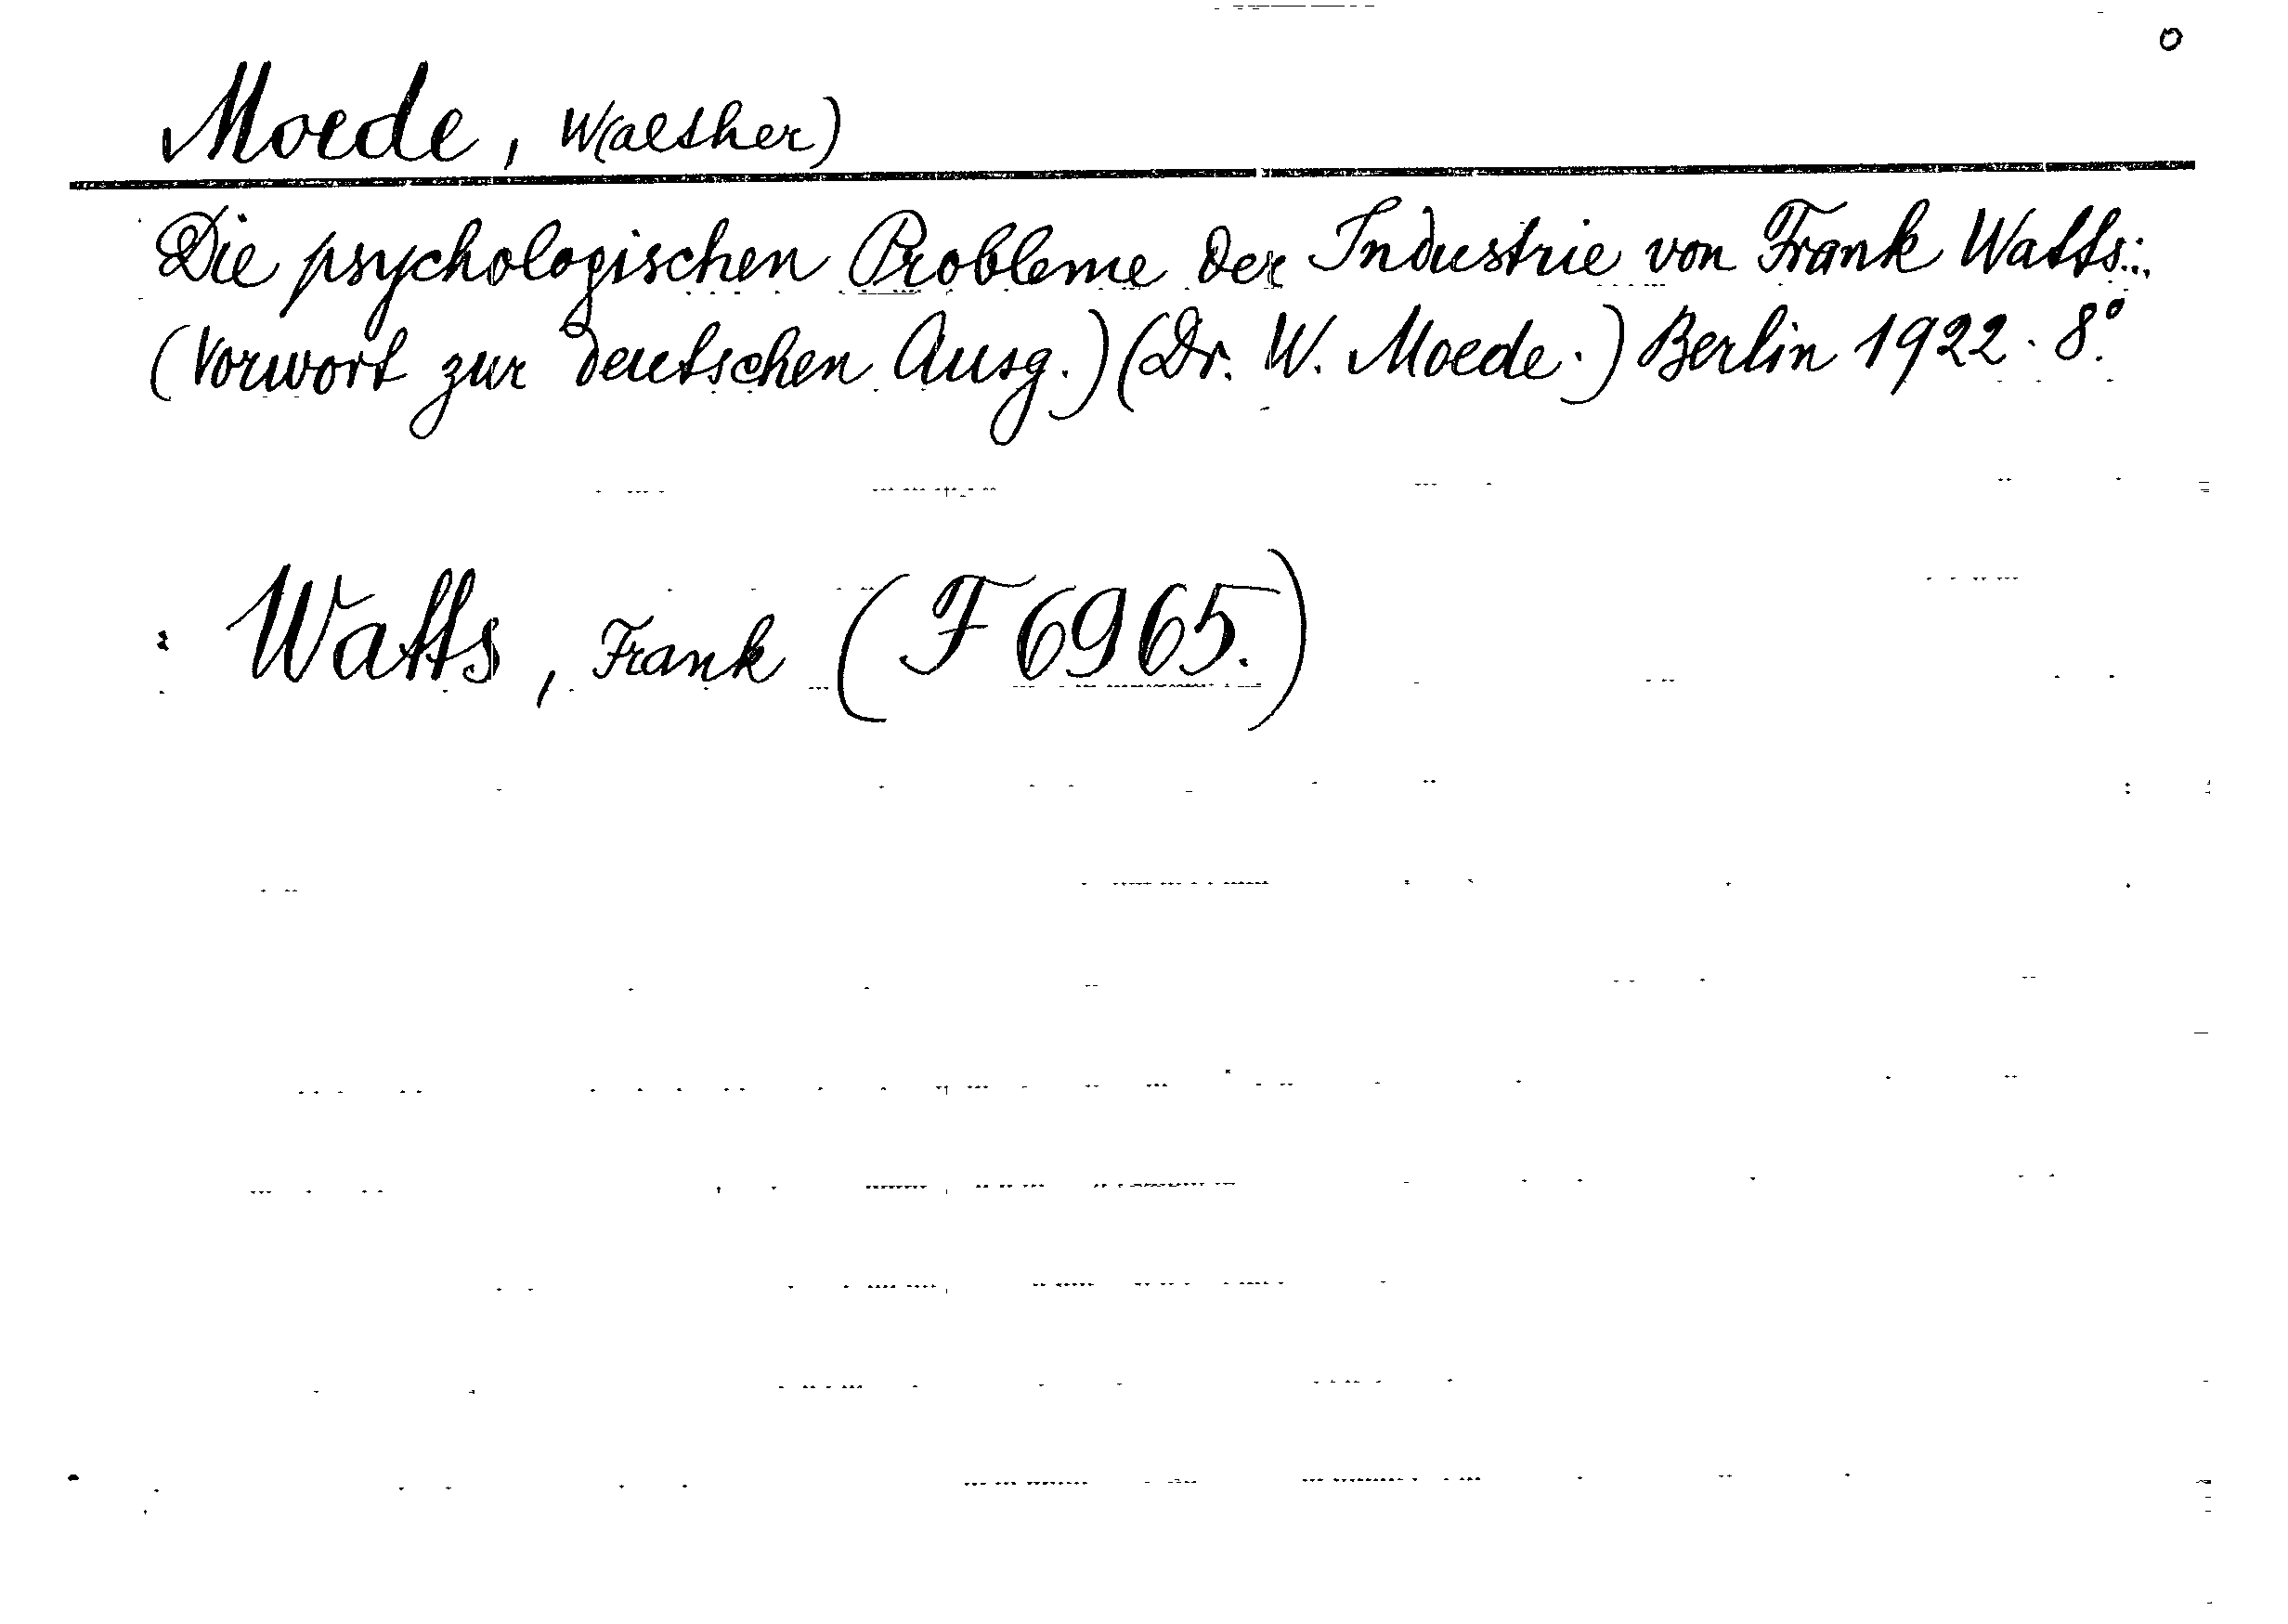 o
Moede, W(alther)
Die psychologischen Probleme der Industrie von Frank Watts...
(Vorwort zur deutschen Ausg.) (Dr. W. Moede.) Berlin 1922. 8°.
: Watts, Frank (F 6965.)